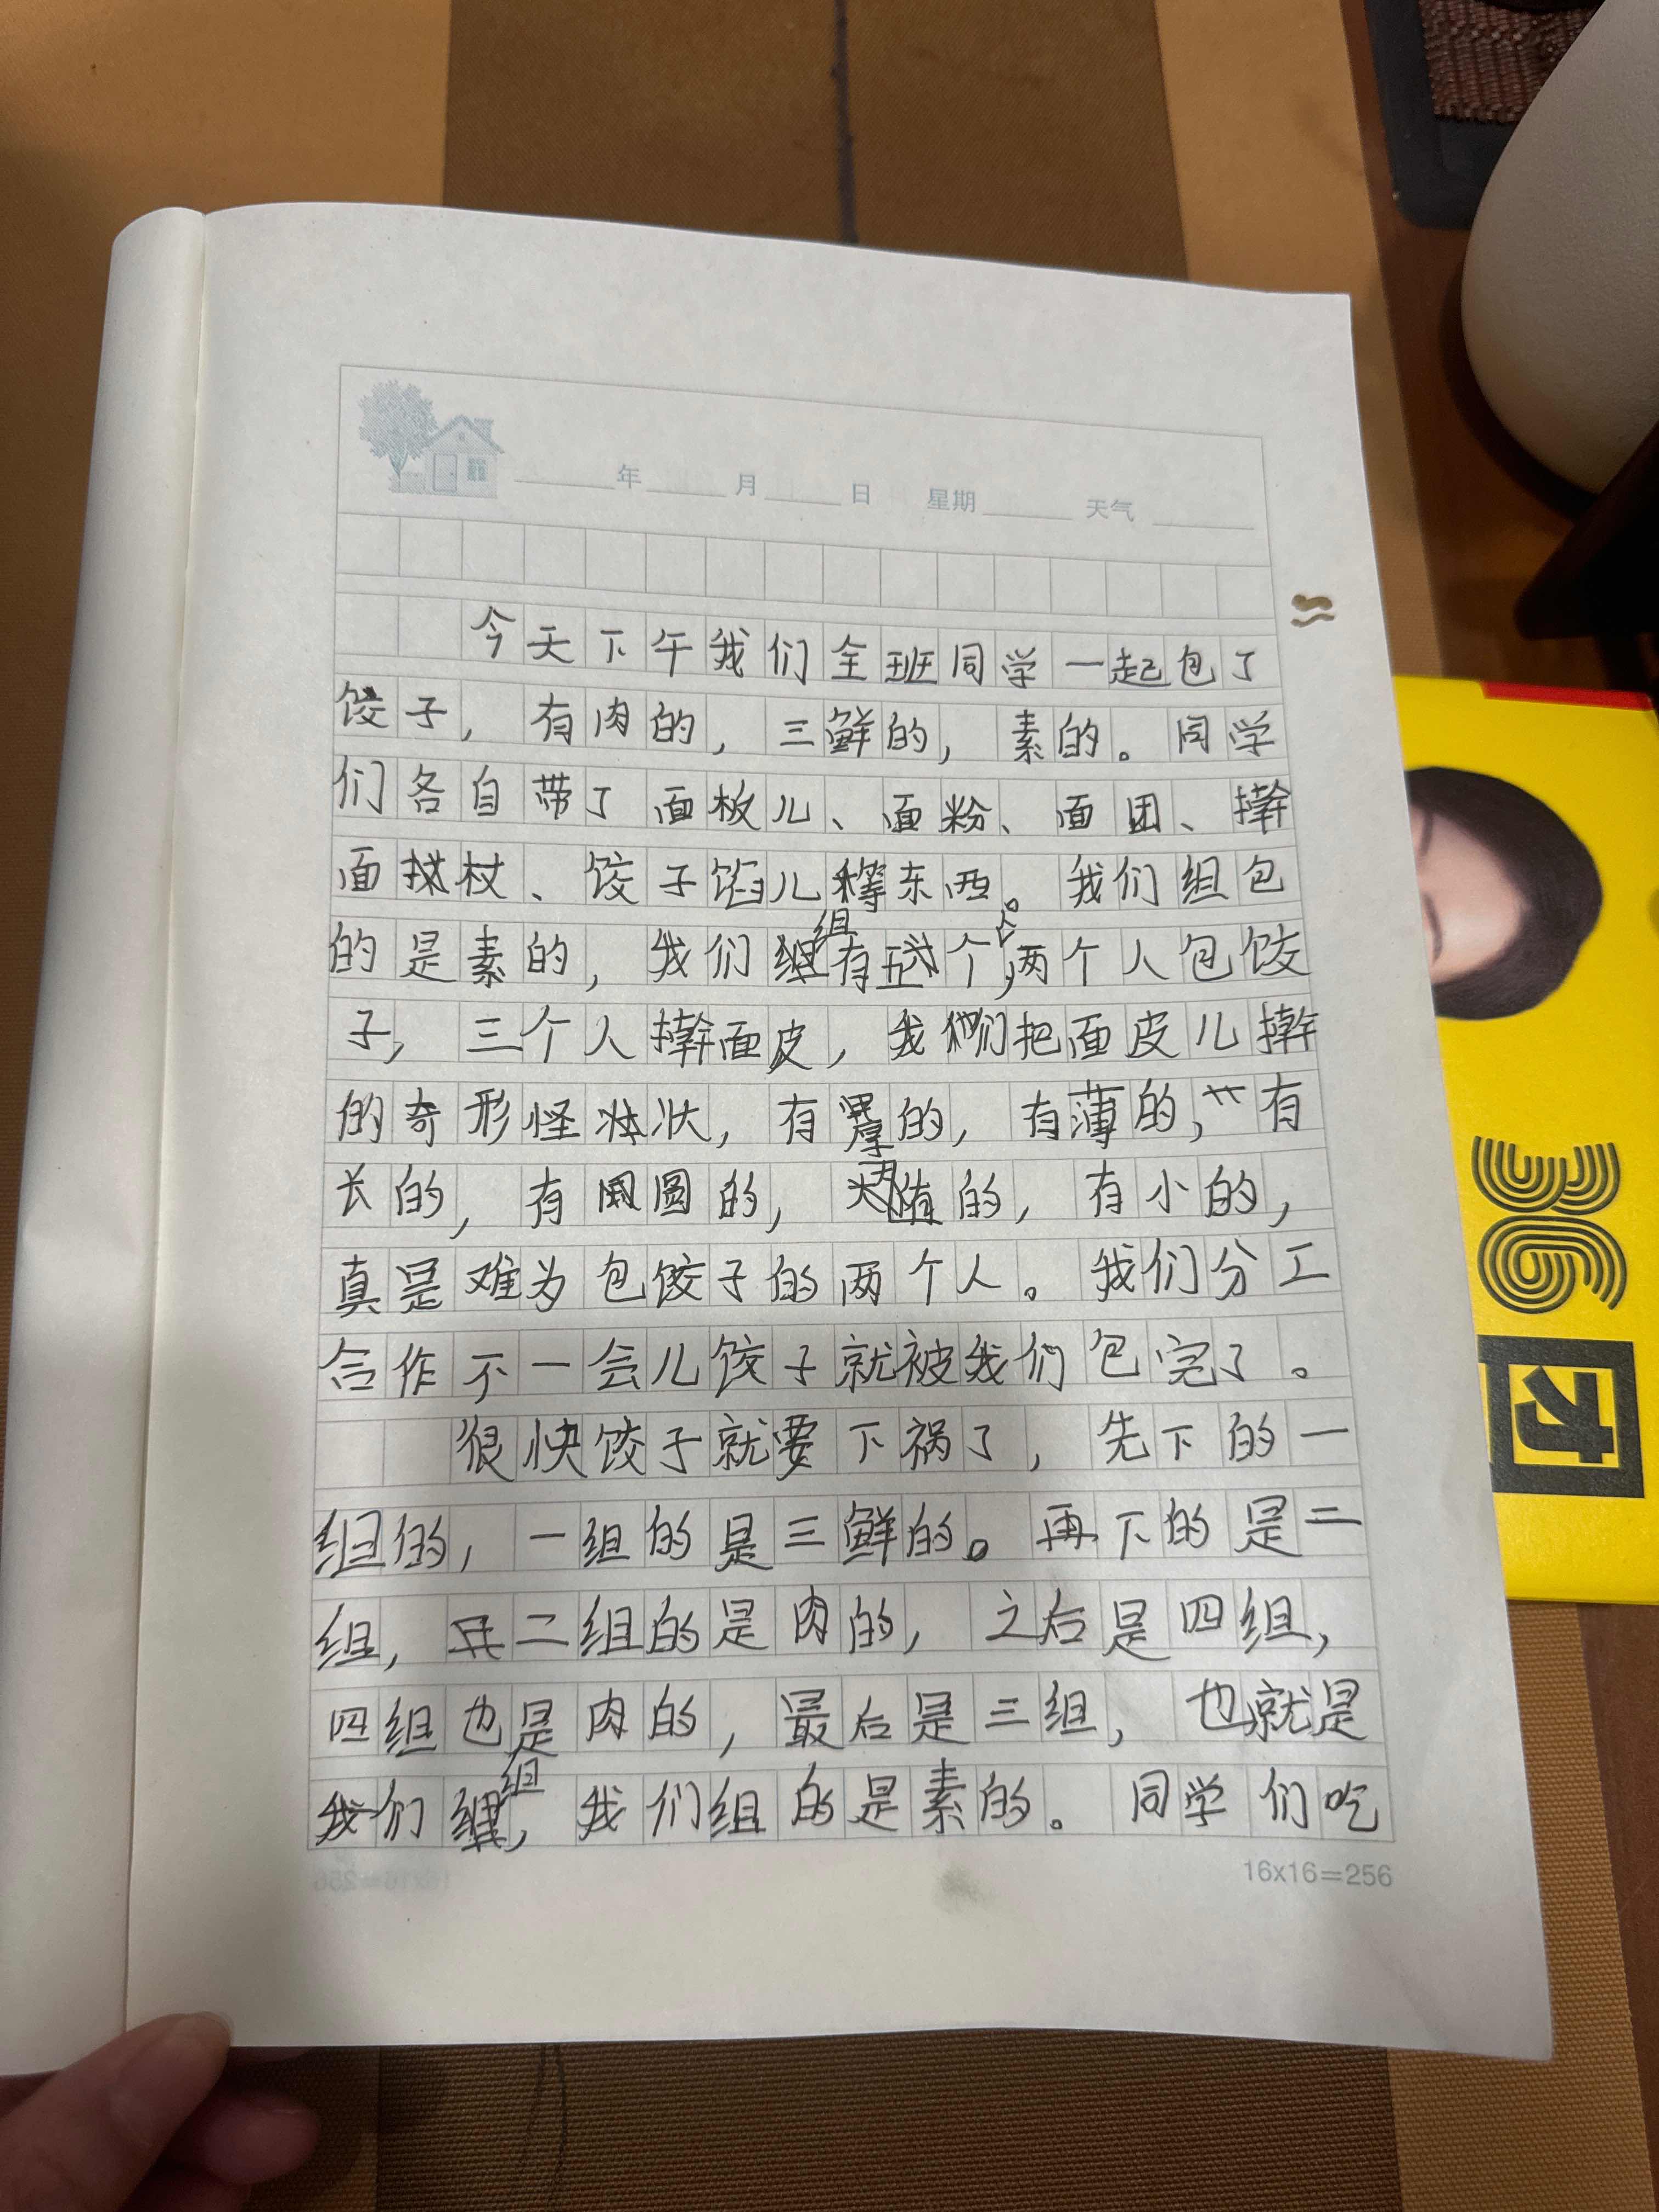 年 月 日 星期 天气
今天下午我们全班同学一起包了
饺子，有肉的，三鲜的，素的。同学
们各自带了面板儿、面粉、面团、擀
面杖、饺子馅儿等东西。我们组包
的是素的，我们组有五个人，两个人包饺
子，三个人擀面皮，我们把面皮儿擀
的奇形怪状，有厚的，有薄的，有
长的，有圆的，有的，有小的，
真是难为包饺子的两个人。我们分工
合作不一会儿饺子就被我们包完了。
很快饺子就要下祸了，先下的一
组的，一组的是三鲜的。再下的是二
组，二组的是肉的，之后是四组，
四组也是肉的，最后是三组，也就是
我们组，我们组的是素的。同学们吃
16x16=256
36
才